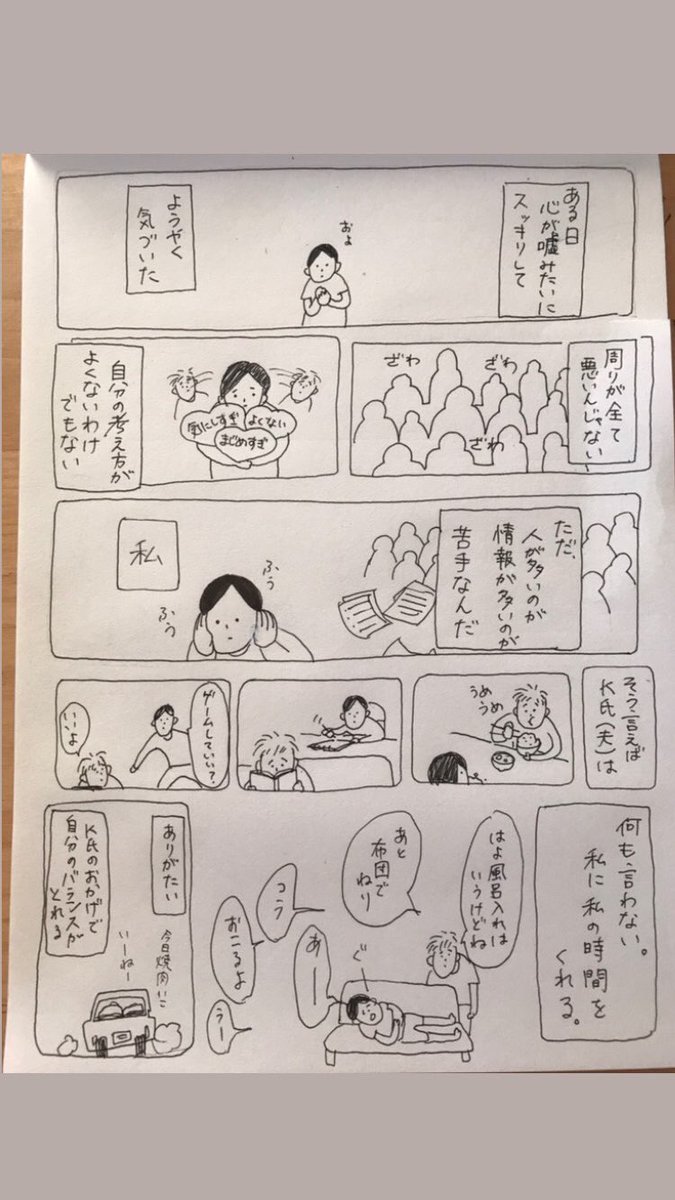 ある日
心が嘘みたいに
スッキリして
およ
ようやく
気づいた
周りが全て
悪いんじゃない
ざわ
ざわ
ざわ
気にしすぎ
よくない
まじめすぎ
自分の考え方が
よくないわけ
でもない
ただ、
人が多いのが
情報が多いのが
苦手なんだ
ふぅ
ふぅ
私
そう言えば
K氏(夫)は
うめ
うめ
ゲームしていい?
いいよ
何も言わない。
私に私の時間を
くれる。
はよ風呂入れは
いうけどね
あと
布団で
ねり
ぐ
あー
コラ
おこるよ
うー
ありがたい
K氏のおかげで
自分のバランスが
とれる
今日焼肉いこ
いーねー